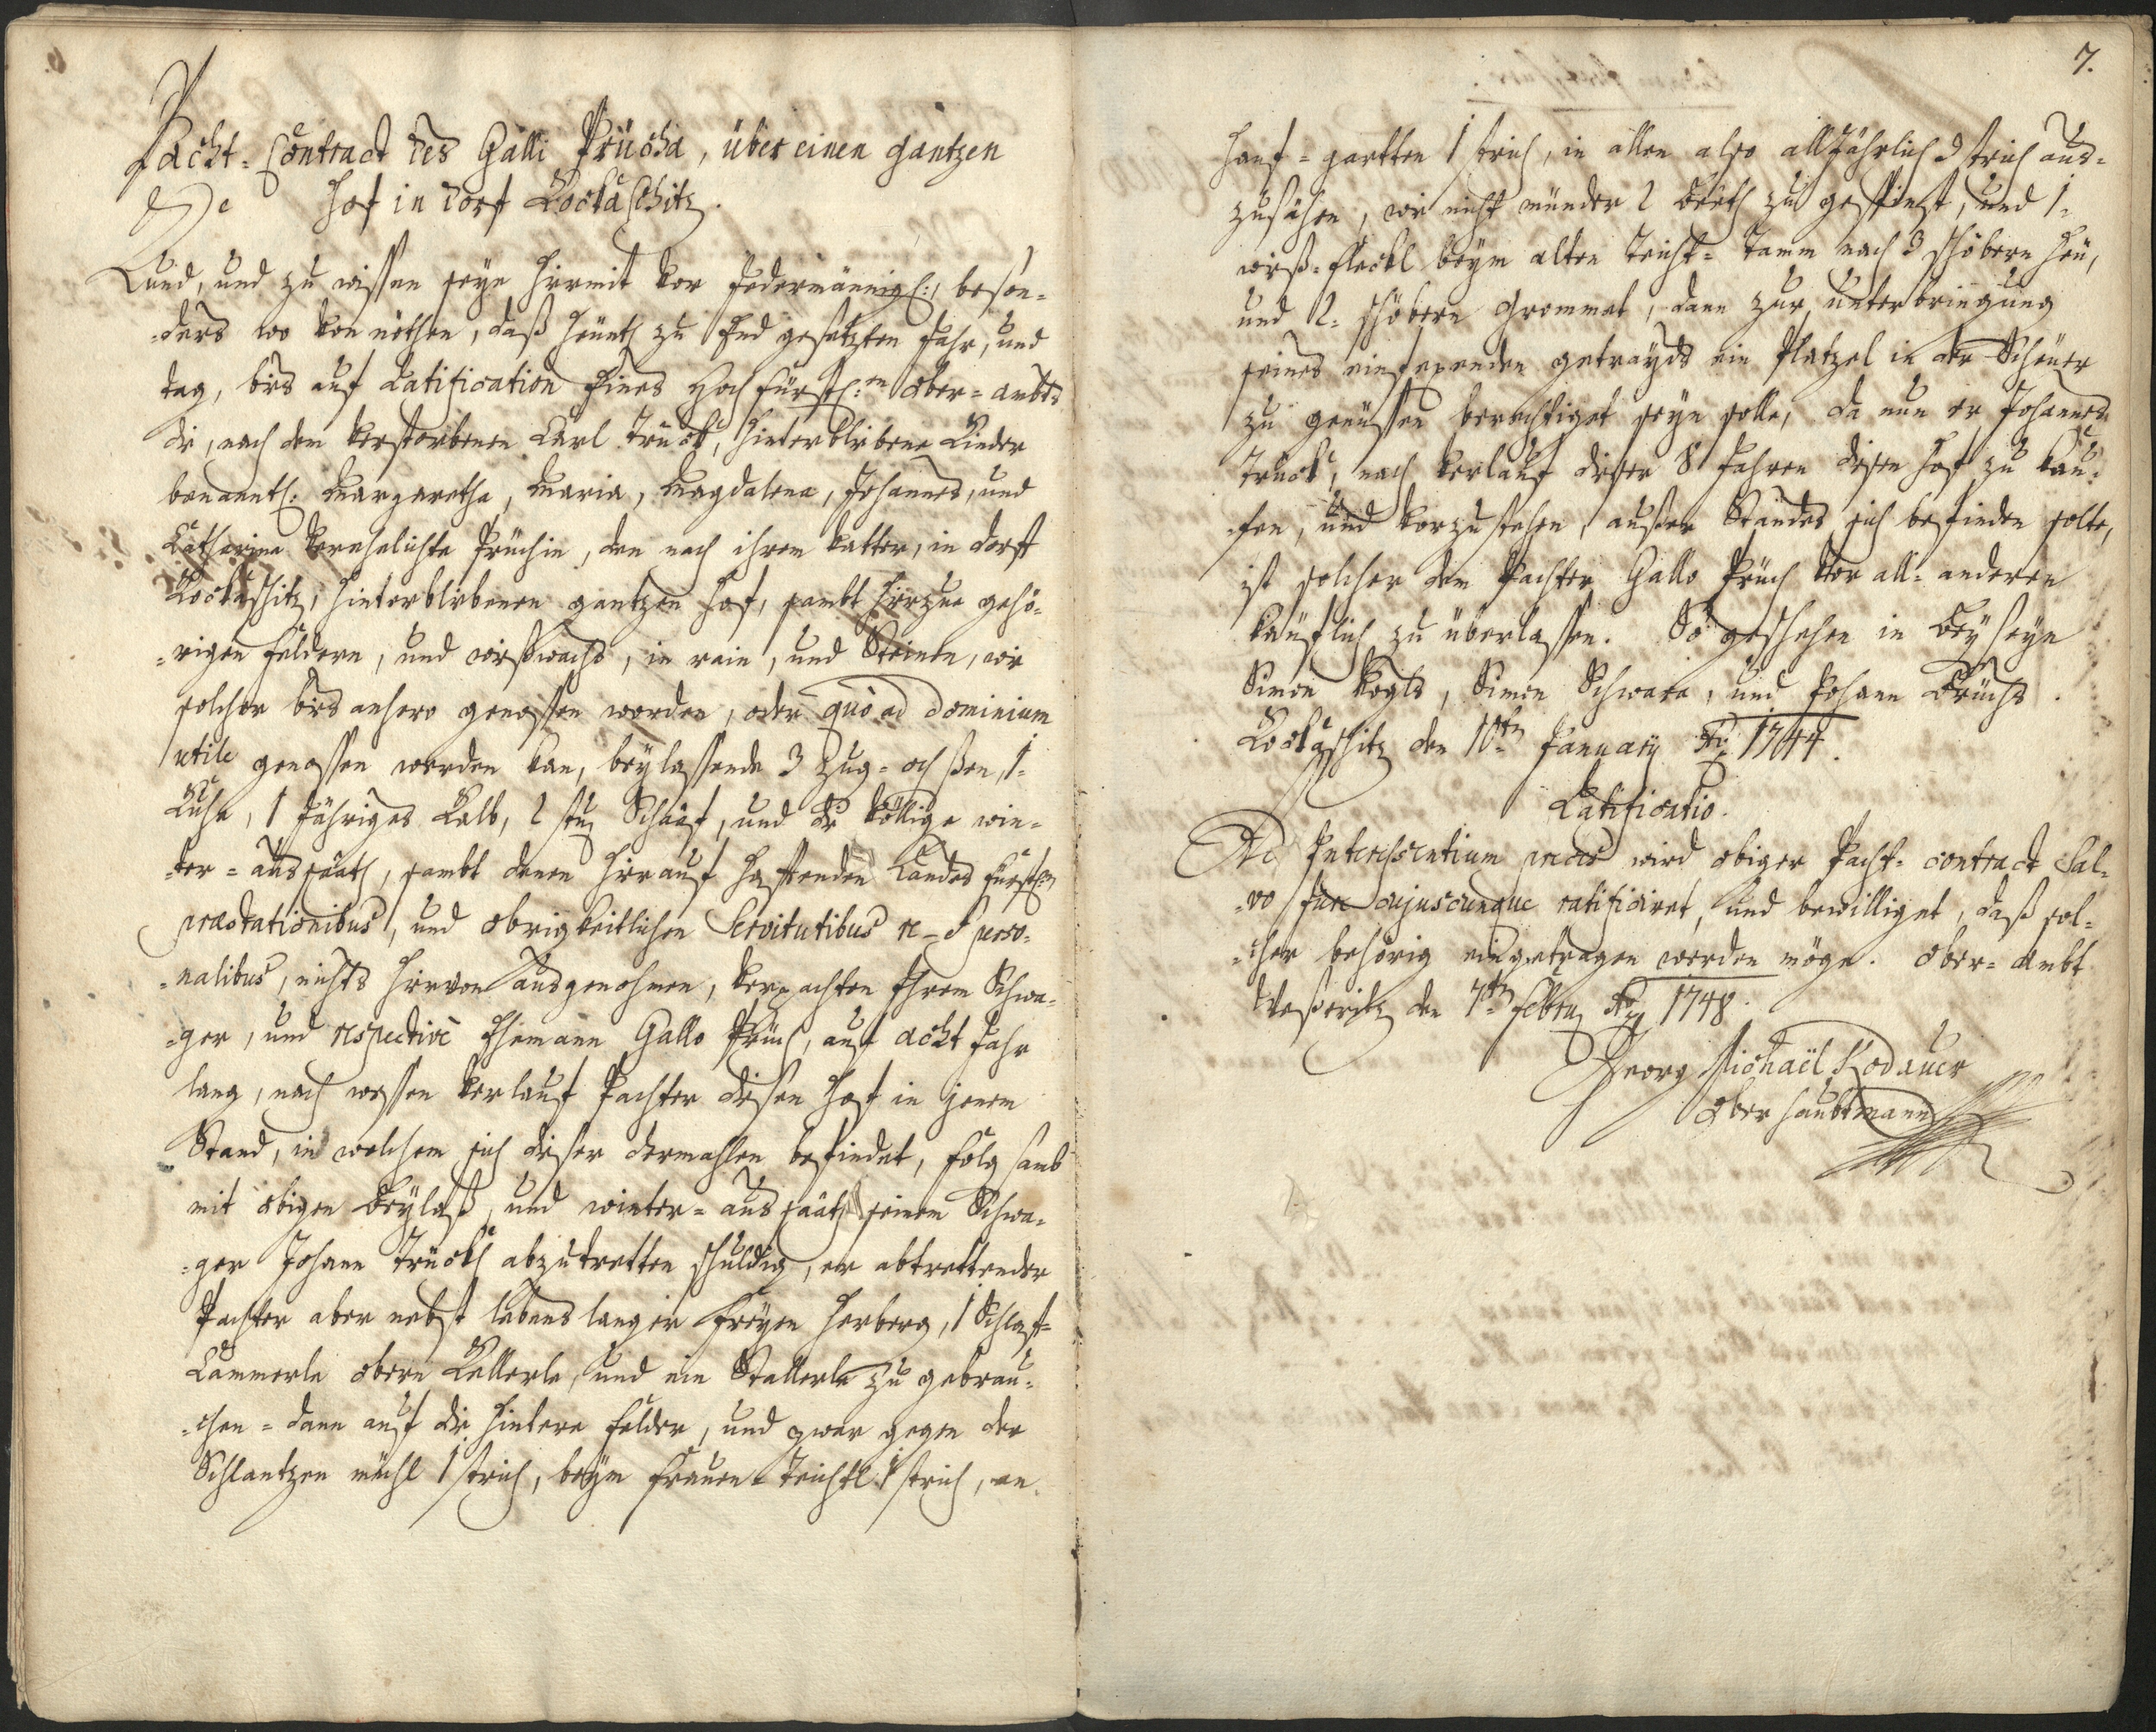 Pacht-Contract des Galli Prücha, über einen gantzen
Hof in dorf Kockaschitz.
Kund, und zu wissen seye hiermit vor Jedermännigl:, beson-
-ders wo von nöthen, daß heünth zu End gesetzten Jahr, und
tag, bies auf Ratification Eines Hoch fürstl:en Ober-ambts
die, nach dem verstorbenen Carl Trück, hinterblibene Kinder
benanntl: Margaretha, Maria, Magdalena, Johannes, und
Catharina verehelichte Prüchin, den nach ihrem vatter, in dorft
Kockaschitz, hinterblibenen gantzen Hof, sambt hierzue gehö-
-rigen feldern, und wießwachs, in rain, und Steinen, wie
solcher bies anhero genossen worden, oder quo ad dominium
utile genossen werden kan, beylassende 3 Zug-ochßen, 1.
Kuhe, 1 Jähriges Kalb, 2 stuz Schaaf, und die völlige win-
-ter-aussaath, sambt denen hierauf hafftenden Landes fürstl:en
præstationibus, und obrigkeitlichen Servitutibus re- & perso-
-nalibus, nichts hiervon ausgenohmen, verpachten Ihrem Schwa-
-ger, und respective Ehemann Gallo Prüch, auf acht Jahr
lang, nach wessen verlauf Pachter diesen Hof in jenem
Stand, in welchem sich dieser dermahlen befindet, folgsamb
mit obigen Beylaß, und winter-aussaath seinem Schwa-
-ger Johann Trückh abzutretten schuldig, er abtrettender
Pachter aber nebst lebens langer freyen Herberg, 1 Schlaff-
Cammerle obern Kellerle, und ein Stallerle zu gebrau-
-chen-dann auf die hintere felder, und zwar gegen der
Schlantzen mühl 1 strich, beym frauen-Teichtl 1 strich, an
7.
Hanf-gartten 1 strich, in allen also alljährlich 3 strich aus-
zusähen, wie nicht münder 2 Beeth zu gespünst, und 1.
wieß-fleckl beym alten Teicht-Tamm nach 3 schöbern Heü,
und 2. schöbern Grommet, dann zur unterbringung
seines einfexenden getraÿds ein Platzel in der Scheüer
zu genüssen berechtiget seyn solle, da nun er Johannes
Trück, nach verlauf dieser 8 Jahren diesen Hof zu kau-
-fen, und vorzustehen, außer Standes sich befinden solte,
ist solcher dem Pachter Gallo Prüch vor all-anderen
käuflich zu überlassen. So geschehen in Beyseyn
Simon Vogls, Simon Schwara, und Johann Brüchs.
Kockaschitz den 10ten January 1744.
Ratificatio.
Ad Interessentium preces wird obiger Pacht-contract Sal-
-vo Jure cujuscunque ratificiret, und bewilliget, daß sol-
-cher behörig eingetragen werden möge. Ober-Ambt
den 7ten Febry 1748.
Georg Michaël Kodauer
Ober Haubtmann